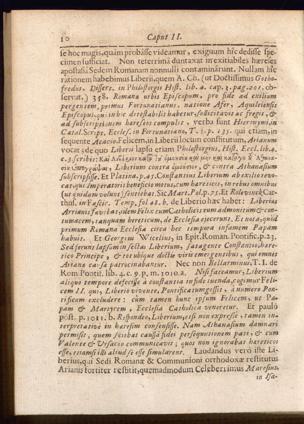 10 Caput II.
se hoc magis, quàm probâsse videamur, exiguum hîc dedisse spe-
cimen sufficiat. Non teterrimâ duntaxat inexstiabiles hæreseos
apostasiâ Sedem Romanam nonnulli contaminârunt. Nullam hîc
rationem habebimus Liberii, quem A. Ch. (ut Doctissimus Gotho-
fredus. Dissert. in Philostorgii Hist. lib. 4. cap. 3. pag. 201. obser-
vat.) 358. Romanæ urbis Episcopum, pro fide ad exilium
pergentem, primus Fortunatianus, natione Afer, Aquileiensis
Episcopus, qui in hoc detestabilis habetur, solicitavit ac fregit, &
ad subscriptionem hæreseos compulit, verba sunt Hieronymi, in
Catal. Script. Eccles. in Fortunatiano, T. 1. p. 135. qui etiam, in
sequente Acacio Felicem, in Liberii locum constitutum, Arianum
vocat: de quo Liberii lapsu etiam Philostorgius, Hist. Eccl. lib. 4.
c. 3. scribit:
Liberium contra & contra Athanasium
subscripsisse. Et Platina. p. 45. Constantius Liberium ab exilio revo-
cat: qui Imperatoris beneficio motus, cum hæreticis, in rebus omnibus
(ut quidam volunt) sentiebat. Sic Mart. Pol. p. 75. Et
in Fascic. Temp. fol. 42. b. de Liberio hæc habet: Liberius
Arrianis favebat, idem Felix cum Catholicis eum
tanquam hæreticum, de Ecclesia ejecerunt. Et nota, quòd
primum Romana Ecclesia circa hec tempora infamem Papam
habuit. Et Georgius Wicelius, in Epit. Roman. Pontific. p. 23.
Sed ferunt lapsum in sectas Liberium, satagente Constantio, hære-
tico Principe, & tot ubique doctis viris emergentibus, qui omnes
Ariana causa patrocinabantur. Nec non Bellarminus, T. 1. de
Rom. Pontif. lib. 4. c. 9. p. m. 1010. a. Nisi fateamur, Liberium
aliquo tempore defecisse à constantia in fide tuenda, cogimur Feli-
cem II. qui, Liberio vivente, Pontificatum gessit, à numero Pon-
tificum excludere: cum tamen hunc ipsum Felicem, ut Pa-
pam & Martyrem, Ecclesia Catholica veneretur. Et paulò
post. p. 1011. b. Respondeo, Liberium, etsi non expressè, tamen in-
terpretativè in hæresim consensisse. Nam Athanasium damnari
permisit, quem sciebat causâ fidei persequutionem pati, & cum
Valente & Ursacio communicavit; quos non ignorabat hæreticos
esse, etiamsi illi aliud se esse simularent. Laudandus verò iste Li-
berius, qui Sedi Romanæ & Communioni orthodoxæ restitutus
Arianis fortiter restitit, quemadmodum Celeberrimus Maresius,
in Isa-